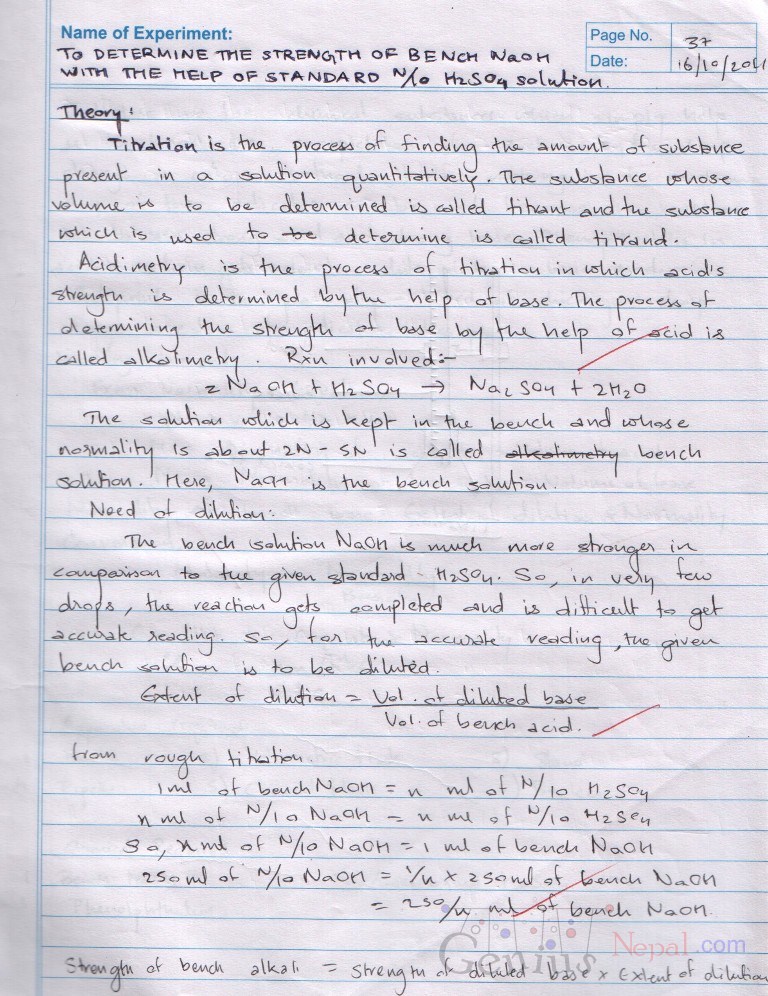 Name of Experiment:
TO DETERMINE THE STRENGTH OF BENCH NaOH
WITH THE HELP OF STANDARD N/10 H2SO4 solution.
Page No. 37
Date: 16/10/2011
Theory:
Titration is the process of finding the amount of substance
present in a solution quantitatively. The substance whose
volume is to be determined is called titrant and the substance
which is used to be determine is called titrand.
Acidimetry is the process of titration in which acid's
strength is determined by the help of base. The process of
determining the strength of base by the help of acid is
called alkalimetry. Rxn involved:-
2NaOH + H2SO4 → Na2SO4 + 2H2O
The solution which is kept in the bench and whose
normality is about 2N - 5N is called alkalimetry bench
solution. Here, NaOH is the bench solution.
Need of dilution:
The bench solution NaOH is much more stronger in
comparison to the given standard H2SO4. So, in very few
drops, the reaction gets completed and is difficult to get
accurate reading. So, for the accurate reading, the given
bench solution is to be diluted.
Extent of dilution = Vol. of diluted base
Vol. of bench acid.
from rough titration.
1ml of bench NaOH = n ml of N/10 H2SO4
n ml of N/10 NaOH = n ml of N/10 H2SO4
So, n ml of N/10 NaOH = 1 ml of bench NaOH
250 ml of N/10 NaOH = 1/n × 250 ml of bench NaOH
= 250/n ml of bench NaOH.
Genius Nepal.com
Strength of bench alkali = Strength of diluted base × Extent of dilution